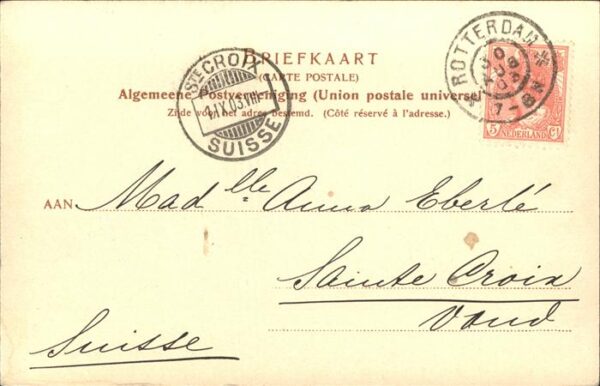 BRIEFKAART
(CARTE POSTALE)
Algemeene Postvereeniging (Union postale universelle)
Zijde voor het adres bestemd. (Côté réservé à l'adresse.)
STE CROIX
1.IX.03.VIII
SUISSE
ROTTERDAM
7-8N
5 Ct
NEDERLAND
AAN Mad lle Anna Eberlé
Sainte Croix
Vaud
Suisse